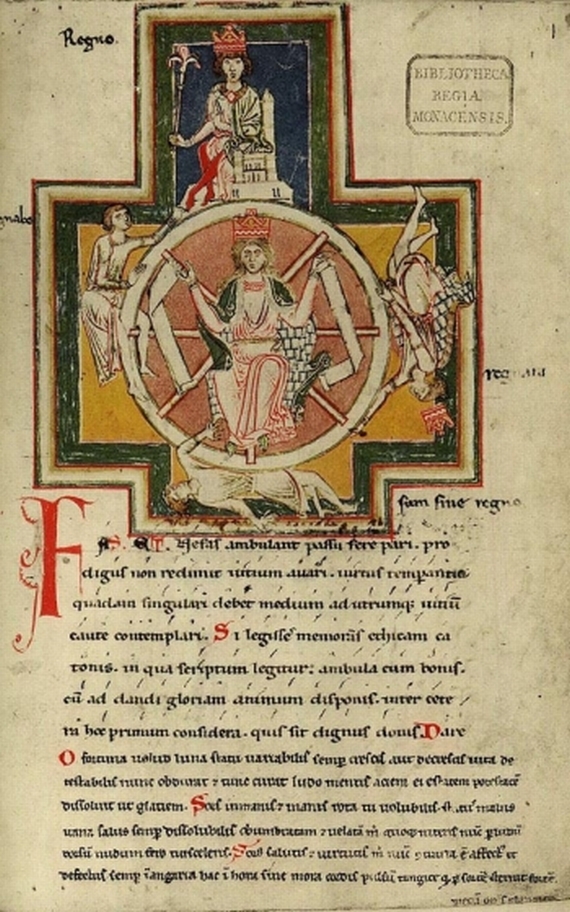 Regno.
BIBLIOTHECA
REGIA
MONACENSIS.
gnabo
regnaui
sum sine regno
Fas et nefas ambulant passu fere pari. pro
digus non redimit uitium auari. uirtus temperantia
quadam singulari debet medium ad utrumque uitium
caute contemplari. Si legisse memoras ethicam ca
tonis. in qua scriptum legitur: ambula cum bonis.
cum ad dandi gloriam animum disponis. inter cete
ra hoc primum considera. quis sit dignus donis. Dare
O fortuna uelud luna statu uariabilis semper crescis aut decrescis uita de
testabilis nunc obdurat et tunc curat ludo mentis aciem egestatem potestatem
dissoluit ut glaciem. Sors inmanis et inanis rota tu uolubilis status malus
uana salus semper dissolubilis obumbratam et uelatam michi quoque niteris nunc per ludum
dorsum nudum fero tui sceleris. Sors salutis et uirtutis michi nunc contraria est affectus et
defectus semper in angaria hac in hora sine mora corde pulsum tangite